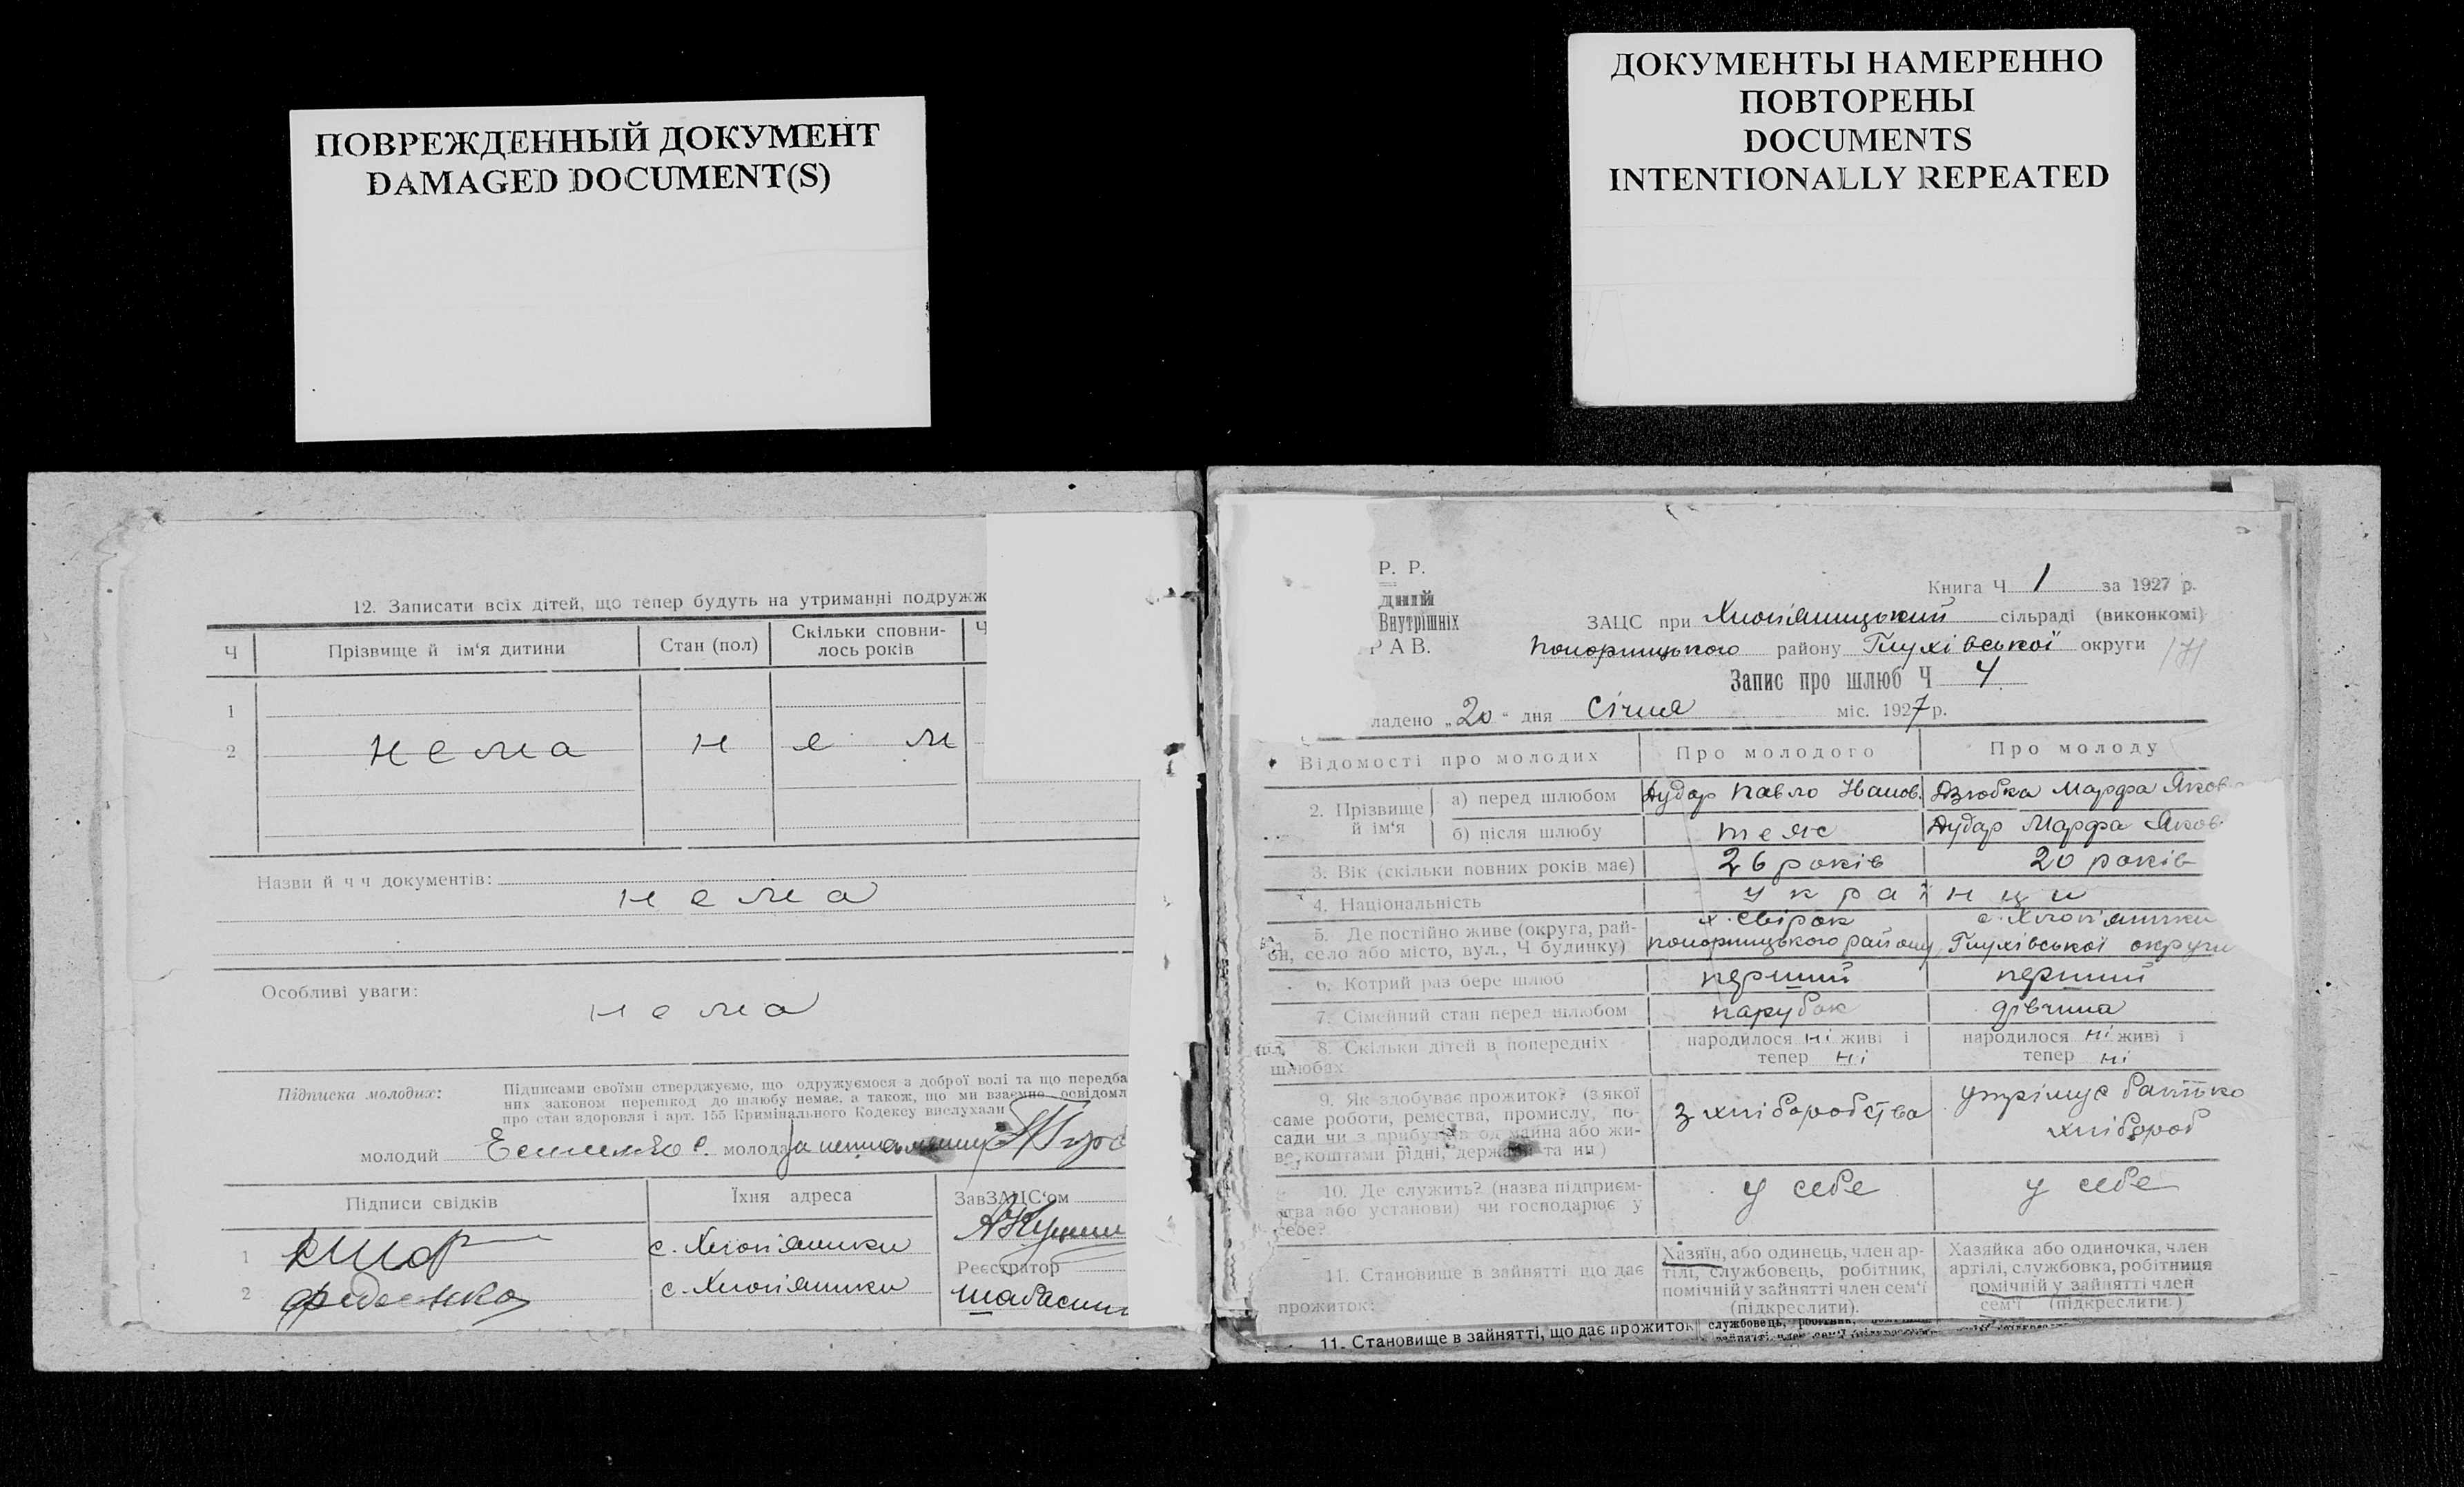 ПОВРЕЖДЕННЫЙ ДОКУМЕНТ
DAMAGED DOCUMENT(S)
ДОКУМЕНТЫ НАМЕРЕННО
ПОВТОРЕНЫ
DOCUMENTS
INTENTIONALLY REPEATED
12. Записати всіх дітей, що тепер будуть на утриманні подружж
Ч
Прізвище й ім'я дитини
Стан (пол)
Скільки сповни-
лось років
Ч
1
2 нема н е м
Назви й ч ч документів:
нема
Особливі уваги:
нема
Підписка молодих:
Підписами своїми стверджуємо, що одружуємося з доброї волі та що передба
них законом перешкод до шлюбу немає, а також, що ми взаємно освідомл
про стан здоров'я і арт. 155 Кримінального Кодексу вислухали
молодий молода
Підписи свідків
Їхня адреса
ЗавЗАЦС'ом
1 с. Хлоп'яники
Реєстратор
2 Феденко с. Хлоп'яники
Р. Р.
дній
Внутрішніх
Р А В.
Книга Ч 1 за 1927 р.
ЗАЦС при Хлоп'яницький сільраді (виконкомі)
Понорницького району Глухівської округи 171
Запис про шлюб Ч 4
ладено „20" дня Січня міс. 1927 р.
Відомості про молодих
Про молодого
Про молоду
2. Прізвище
й ім'я
а) перед шлюбом Дудар Павло Іванов. Дзюбка Марфа Яков
б) після шлюбу теж Дудар Марфа Яков
3. Вік (скільки повних років має) 26 років 20 років
4. Національність українци
5. Де постійно живе (округа, рай-
он, село або місто, вул., Ч будинку)
х. Свірок
Понорницького району
с. Хлоп'яники
Глухівської округи
6. Котрий раз бере шлюб перший перший
7. Сімейний стан перед шлюбом парубок дівчина
8. Скільки дітей в попередніх
шлюбах
народилося ні живі і
тепер ні
народилося ні живі і
тепер ні
9. Як здобуває прожиток? (з якої
саме роботи, ремества, промислу, по-
сади чи з прибутків од майна або жи-
ве коштами рідні, держави та ин)
з хліборобства
утрімує батько
хлібороб
10. Де служить? (назва підприєм-
ства або установи) чи господарює у
себе?
у себе
у себе
11. Становище в зайнятті що дає
прожиток:
Хазяїн, або одинець, член ар-
тілі, службовець, робітник,
помічній у зайнятті член сем'ї
(підкреслити).
Хазяйка або одиночка, член
артілі, службовка, робітниця
помічній у зайнятті член
сем'ї (підкреслити)
11. Становище в зайнятті, що дає прожиток
службовець, робітник,